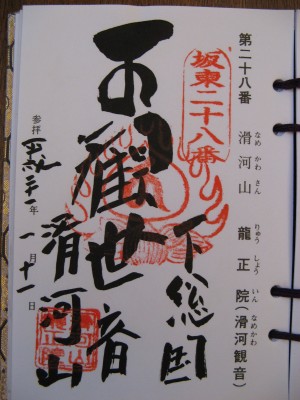 第二十八番 滑河山 龍正院(滑河観音)
なめ かわ さん りゅう しょう いん なめかわ
坂東二十八番
下総国
觀世音
滑河山
参拝 平成二十一年 一月十一日